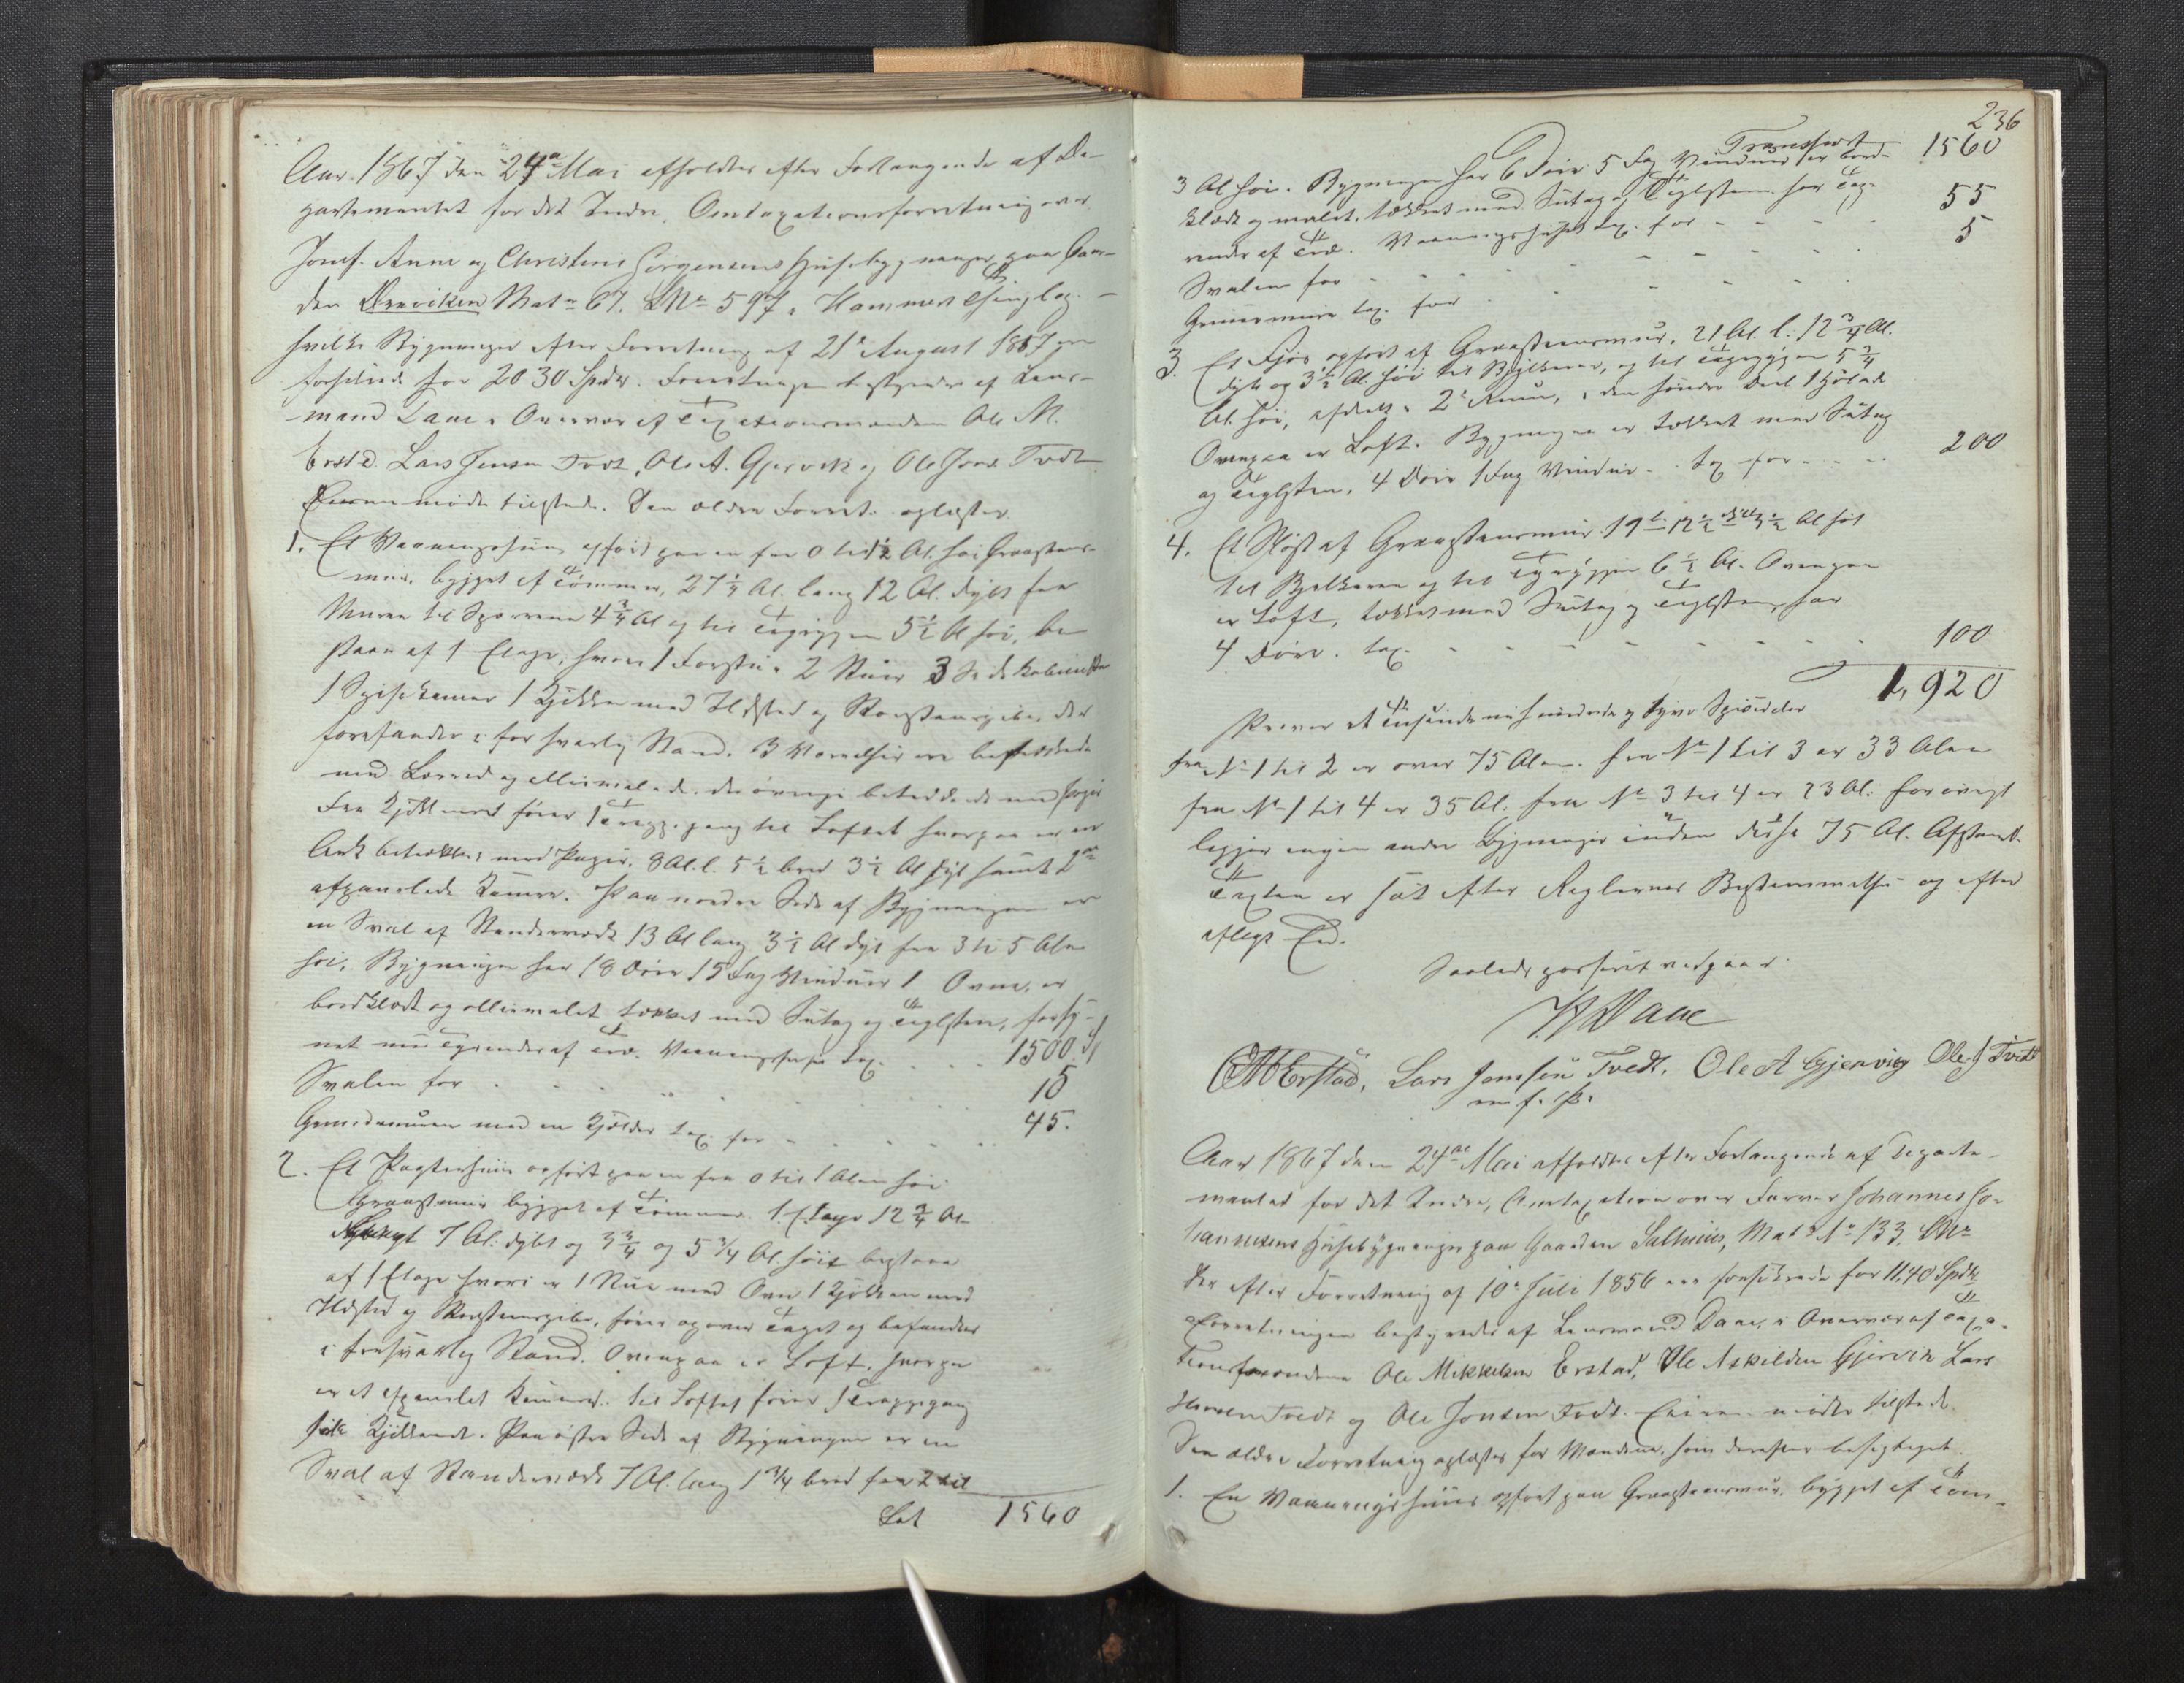 Aar 1867 den 24de Mai afholdtes efter Forlangende af De-
partementet for det Indre, Omtaxationsforretning over
Jomf. Anne og Christine Jørgensens Huusebygninger paa Gaar-
den Øreviken Matr 67. LNr 597, Hammers Thinglag. -
hvilke Bygninger efter Forretning af 21de August 1857 ere
forsikrede for 2030 Spdlr. Forretningen bestyredes af Lens-
mand Dane i Overvær af Taxationsmændene Ole M.
Erstd. Lars Jensen Tvedt, Ole A. Gjervik og Ole Jons. Tvedt
Eierne mødte tilstede. Den ældre Forret. oplæstes.
1. Et Vaaningshuus opført paa en fra 0 til 1½ Al. høi Graasteens-
muur, bygget af Tømmer, 27½ Al. lang 12 Al. dybt fra
Muren til Sperrene 4¾ Al og til Tagryggen 5½ Al høi, be-
staar af 1 Etage, hvori 1 Forstue 2 Stuer 3 Sidekabinetter
1 Spisekamer 1 Kjøkken med Ildsted og Skorsteenspibe, der
forefandtes i forsvarlig Stand. 3 Værelser ere betrækkede
med Lærred og oliemalede. de øvrige betrækkede med Papir
Fra Kjøkkenet fører 1 Trappegang til Loftet hvorpaa er en
Ark betrækket med Papir. 8 Al. l. 5½ bred 3½ Al høi samt 2de
afpanelede Kamre. Paa nordre Side af Bygningen er
en Sval af Stenderværk 13 Al lang 3½ Al dyb fra 3 til 5 Alen
høi, Bygningen har 18 Døre 15 Fag Vinduer 1 Ovne, er
bordklædt og oliemalet tækket med Sutag og Teglsteen, forsy-
net med Tagrender af Træ. Vaaningshuset tax. . . . 1500 S
Svalen for . . . . . 15
Grundmuren med en Kjælder tax. for - . . . . 45.
2. Et Pagterhuus opført paa en fra 0 til 1 Alen høi
Graasteensmuur bygget af Tømmer. 1 Etage 12¾ Al.
langt 7 Al. dybt og 3¾ og 5¾ Al. høit bestaar
af 1 Etage hvori er 1 Stue med Ovn 1 Kjøkken med
Ildsted og Skorsteenspibe, fører op over Taget og befandtes
i forsvarlig Stand. Ovenpaa er Loft, hvorpaa
er et afpanelet Kammer. til Loftet fører 1 Trappegang
fra Kjøkkenet. Paa østre Side af Bygningen er en
Sval af Stenderværk 7 Al. lang 1¾ bred fra 2 til
Lat 1560
236
Transport 1560
3 Al høi. Bygningen har 6 Døre 5 Fag Vinduer er bord-
klædt og malet, tækket med Sutag og Teglsteen har Tag-
render af Træ. Vaaningshuset tax. for - - - - 55
Svalen for - - - - - - - 5
Grundmuren tax. for - - - -
3. Et Fjøs opført af Graasteensmuur, 21 Al. l. 12¾ Al.
dybt og 3½ Al. høi til Bjelkerne, og til Tagryggen 5¾
Al. høi, afdelt i 2de Rum, i den søndre Deel 1 Hølade
Ovenpaa er Loft. Bygningen er tækket med Sutag
og Teglsteen, 4 Døre 1 Fag Vindue - . tax for - . . . 200
4. Et Nøst af Graasteensmuur 19 l. 12½ dybt 3½ Al høi
til Bjelkerne og til Tagryggen 6½ Al. Ovenpaa
er Loft, tækket med Sutag og Teglsteen, har
4 Døre. tax. - - - - - - - 100
1,920
Skriver et Tusinde nihundrede og tyve Speciedaler
fra No 1 til 2 er over 75 Alen. fra No 1 til 3 er 33 Alen
fra No 1 til 4 er 35 Al. fra No 3 til 4 er 23 Al. forøvrigt
ligger ingen andre Bygninger inden disse 75 Al. Afstand.
Taxten er sat efter Reglernes Bestemmelse og efter
aflagt Ed.
Saaledes passeret vedgaaer
Dane
OMErstad, Lars Jomsen Tvedt, Ole A Gjervig Ole J Tvedt
m. f. P.
Aar 1867 den 24de Mai afholdtes efter Forlangende af Departe-
mentet for det Indre, Omtaxation over Farver Johannes Jo-
hannesens Huusebygninger paa Gaarden Salhuus, Matr No 133, LNr
der efter Forretning af 10de Juli 1856 ere forsikrede for 1140 Spdlr
Forretningen bestyredes af Lensmand Dane, i Overvær af Taxa-
tionsmændene Ole Mikkelsen Erstad, Ole Askildsen Gjervik Lars
Tvedt og Ole Jonsen Tvedt. Eieren mødte tilstede.
Den ældre Forretning oplæstes for Mændene, som derefter besigtiget
1. En Vaaningshuus opført paa Graasteensmuur, bygget af Tøm-